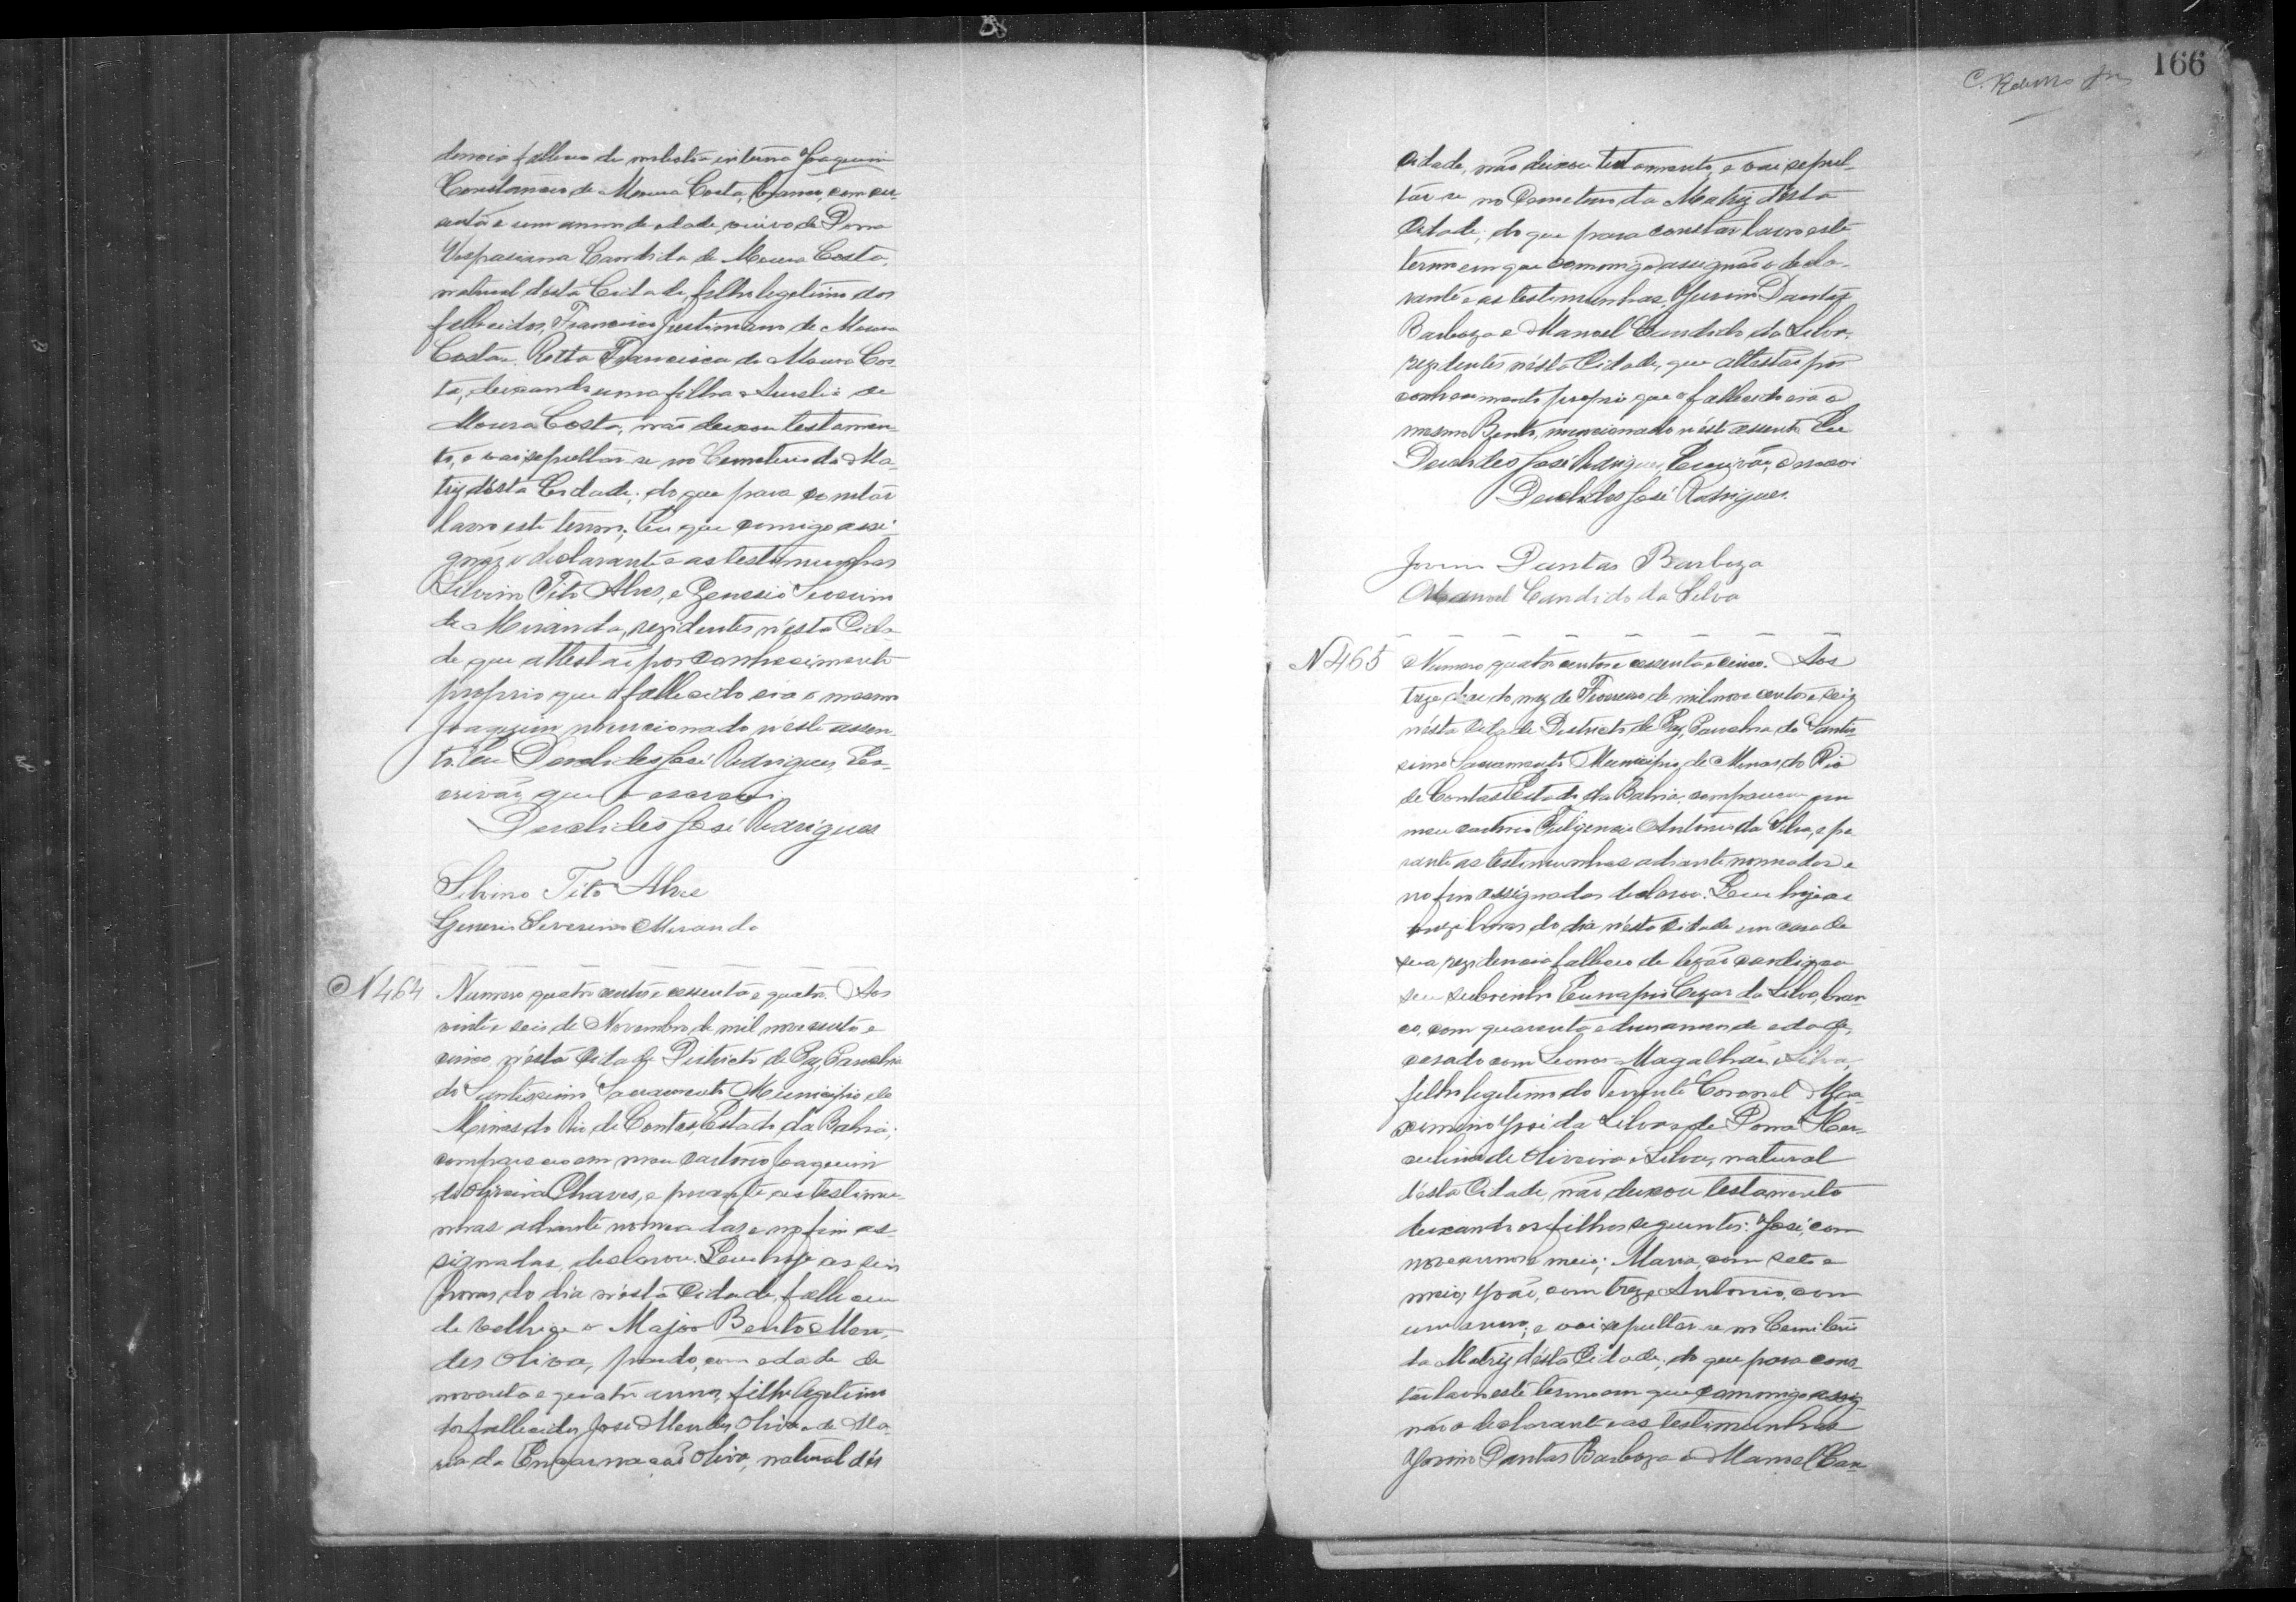 dencia falleceu de molestia interna Joaquim
Constancio de Moura Costa, branco, com ses-
senta e um annos de edade, viuvo de Dona
Vespasiana Candida de Moura Costa,
natural désta Cidade, filho legitimo dos
fallecidos, Francisco Justiniano de Moura
Costa e Ritta Francisca de Moura Cos-
ta, deixando uma filha Aurelia de
Moura Costa, não deixou testamen-
to, e vai sepultar-se no Cemeterio da Ma-
triz désta Cidade; do que para constar
lavro este termo, em que comigo assi-
gnão o declarante e as testemunhas
Silvino Tito Alves, e Genesio Severino
de Miranda, rezidentes n'ésta Cida-
de que attestão por conhecimento
proprio que o fallecido era o mesmo
Joaquim mencionado n'este assen-
to. Eu Deraldides José Rodrigues, Es-
crivão que o escrevi.
Deraldides José Rodrigues
Silvino Tito Alves
Genesio Severino Miranda
N 464 Numero quatro centos e cessenta e quatro. Aos
vinte e seis de Novembro de mil nove cento e
cinco, n'ésta Cidade Districto de Paz, Parochia
do Santissimo Sacramento Municipio de
Minas do Rio de Contas, Estado da Bahia,
compareceo em meu cartorio Joaquim
de Oliveira Chaves, e perante as testemu-
nhas adiante nomeadas e no fim as-
signadas, declarou: Que hoje as seis
horas do dia n'ésta Cidade, falleceu
de velhice o Major Bento Men-
des Oliva, pardo, com edade de
noventa e quatro annos, filho legitimo
dos fallecidos José Mendes Oliva e de Ma-
ria da Encarnação Oliva, natural dés
166
Cidade, não deixou testamento, e vai sepul-
tar-se no Cemeterio da Matriz désta
Cidade; do que para constar lavro este
termo em que commigo assignão o decla-
rante e as testemunhas, Jovino Dantas
Barboza e Manoel Candido da Silva,
rezidentes n'ésta Cidade, que attestão por
conhecimento proprio que o fallecido era o
mesmo Bento, mencionado n'este assento. Eu
Deraldides José Rodrigues, Escrivão, o escrevi
Deraldides José Rodrigues.
Jovino Dantas Barboza
Manoel Candido da Silva
N 465 Numero quatro centos e cessenta e cinco. Aos
treze dias do mez de Fevereiro de mil nove centos e seis
n'ésta Cidade Districto de Paz, Parochia do Santis-
simo Sacramento Municipio de Minas do Rio
de Contas Estado da Bahia, compareceu em
meu cartorio Fulgencio Antonio da Silva, e pe-
rante as testemunhas adiante nomeadas e
no fim assignadas declarou: Que hoje as
horas do dia n'ésta Cidade em casa de
sua rezidencia falleceu de lezão cardiaca
seu sobrinho Cezar da Silva, bran-
co, com quarenta e dous annos de edade,
casado com Leonor Magalhães e Silva,
filho legitimo do Tenente Coronel Ma-
ximino José da Silva e de Dona Her-
culina de Oliveira e Silva, natural
d'ésta Cidade, não deixou testamento
deixando os filhos seguintes: José, com
nove annos e meio; Maria, com sete e
meio, João, com trez, e Antonio, com
um anno; e vai sepultar-se no Cemiterio
da Matriz d'ésta Cidade; do que para cons-
tar lavro este termo em que commigo assig-
não o declarante e as testemunhas
Jovino Dantas Barboza e Manoel Can-